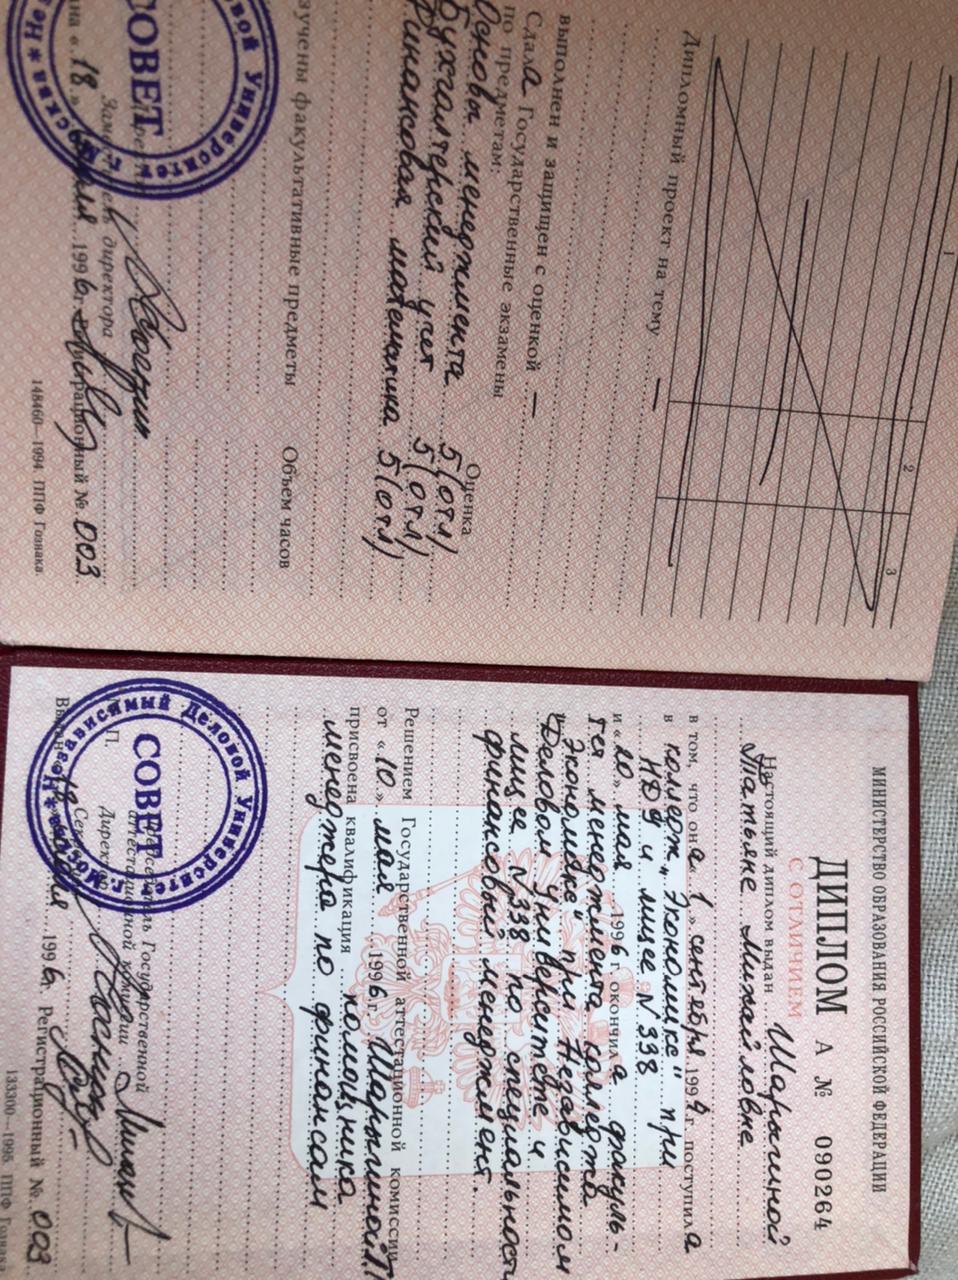 1 2 3
Дипломный проект на тему —
выполнен и защищен с оценкой —
Сдала Государственные экзамены
по предметам: Оценка
Основы менеджмента 5(отл)
Бухгалтерский учет 5(отл)
Финансовая математика 5(отл)
зучены факультативные предметы Объем часов
директора
18 1996 г. Регистрационный № 003
148460—1994. ППФ Гознака.
СОВЕТ
МИНИСТЕРСТВО ОБРАЗОВАНИЯ РОССИЙСКОЙ ФЕДЕРАЦИИ
ДИПЛОМ А № 090264
С ОТЛИЧИЕМ
Настоящий диплом выдан Шарыгиной
Татьяне Михайловне
в том, что она «1» сентября 1994 г. поступила
в колледж „Экономике" при
НДУ и лицее N 338
и «10» мая 1996 г. окончила факуль-
тет менеджмента колледжа
„Экономике" при Независимом
Деловом Университете и
лицее N 338 по специальности
финансовый менеджмент.
Решением Государственной аттестационной комиссии
от «10» мая 1996 г. Шарыгиной Т.
присвоена квалификация помощника
менеджера по финансам
Председатель Государственной
аттестационной комиссии
Директор
М.П. Секретарь
18 1996 г. Регистрационный № 003
133300—1995. ППФ Гознака
Независимый Деловой Университет г. Москва
СОВЕТ